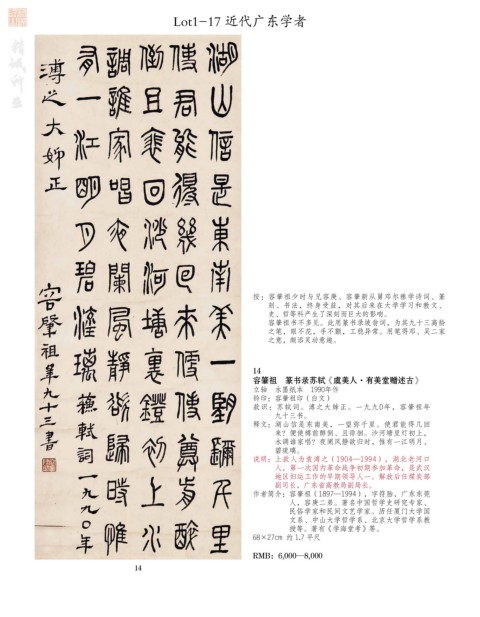 Lot1-17 近代广东学者
湖山信是东南美一望弥千里
使君能得几回来便使尊前醉
倒且徘回沙河塘里镫初上水
调谁家唱夜阑风静欲归时惟
有一江明月碧琉璃 苏轼词 一九九〇年
溥之大姊正
容肇祖年九十三书
14
按：容肇祖少时与兄容庚、容肇新从舅邓尔雅学诗词、篆
刻、书法，终身受益，对其后来在大学学习和教文、
史、哲等科产生了深刻而巨大的影响。
容肇祖书不多见。此用篆书录坡翁词，为其九十三高龄
之笔，眼不花，手不颤，工稳异常。用笔得邓、吴二家
之意，颇添灵动意趣。
14
容肇祖 篆书录苏轼《虞美人·有美堂赠述古》
立轴 水墨纸本 1990年作
钤印：容肇祖印（白文）
款识：苏轼词。溥之大姊正。一九九〇年，容肇祖年
九十三书。
释文：湖山信是东南美，一望弥千里。使君能得几回
来？便使樽前醉倒，且徘徊。沙河塘里灯初上，
水调谁家唱？夜阑风静欲归时，惟有一江明月，
碧琉璃。
说明：上款人为袁溥之（1904—1994），湖北老河口
人，第一次国内革命战争初期参加革命，是武汉
地区妇运工作的早期领导人一。解放后任煤炭部
副司长，广东省高教局副局长。
作者简介：容肇祖（1897—1994），字符胎，广东东莞
人，容庚二弟。著名中国哲学史研究专家，
民俗学家和民间文艺学家。历任厦门大学国
文系、中山大学哲学系、北京大学哲学系教
授等。著有《学海堂考》等。
68×27cm 约1.7平尺
RMB: 6,000—8,000